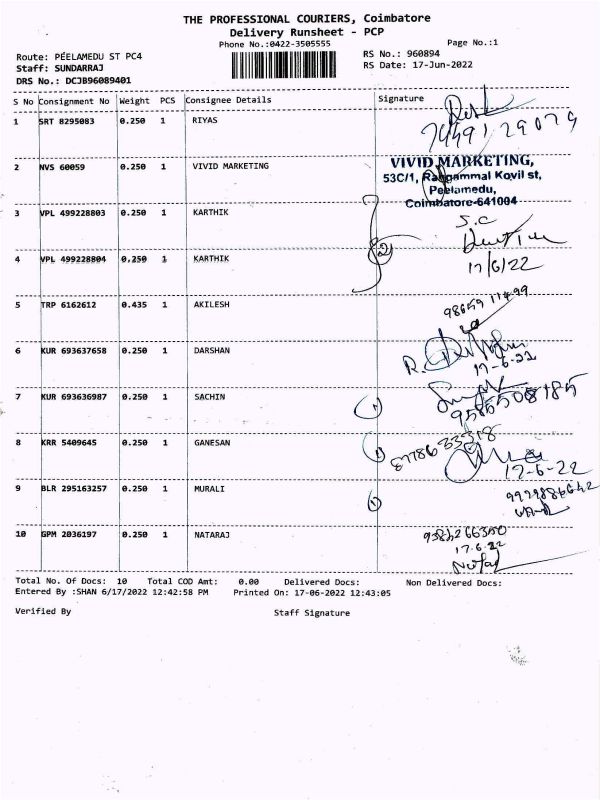 THE PROFESSIONAL COURIERS, Coimbatore
Delivery Runsheet - PCP
Phone No.:0422-3505555
Page No.:1
Route: PEELAMEDU ST PC4
RS No.: 960894
Staff: SUNDARRAJ
RS Date: 17-Jun-2022
DRS No.: DCJB96089401
S No Consignment No Weight PCS Consignee Details Signature
1 SRT 8295083 0.250 1 RIYAS
2 NVS 60059 0.250 1 VIVID MARKETING
VIVID MARKETING,
53C/1, Rangammal Kovil st,
Peelamedu,
Coimbatore-641004
3 VPL 499228803 0.250 1 KARTHIK
S.C
4 VPL 499228804 0.250 1 KARTHIK
2
17/6/22
5 TRP 6162612 0.435 1 AKILESH
6 KUR 693637658 0.250 1 DARSHAN
17-6-22
7 KUR 693636987 0.250 1 SACHIN
8 KRR 5409645 0.250 1 GANESAN
17-6-22
9 BLR 295163257 0.250 1 MURALI
10 GPM 2036197 0.250 1 NATARAJ
17.6.22
Total No. Of Docs: 10 Total COD Amt: 0.00 Delivered Docs: Non Delivered Docs:
Entered By :SHAN 6/17/2022 12:42:58 PM Printed On: 17-06-2022 12:43:05
Verified By Staff Signature